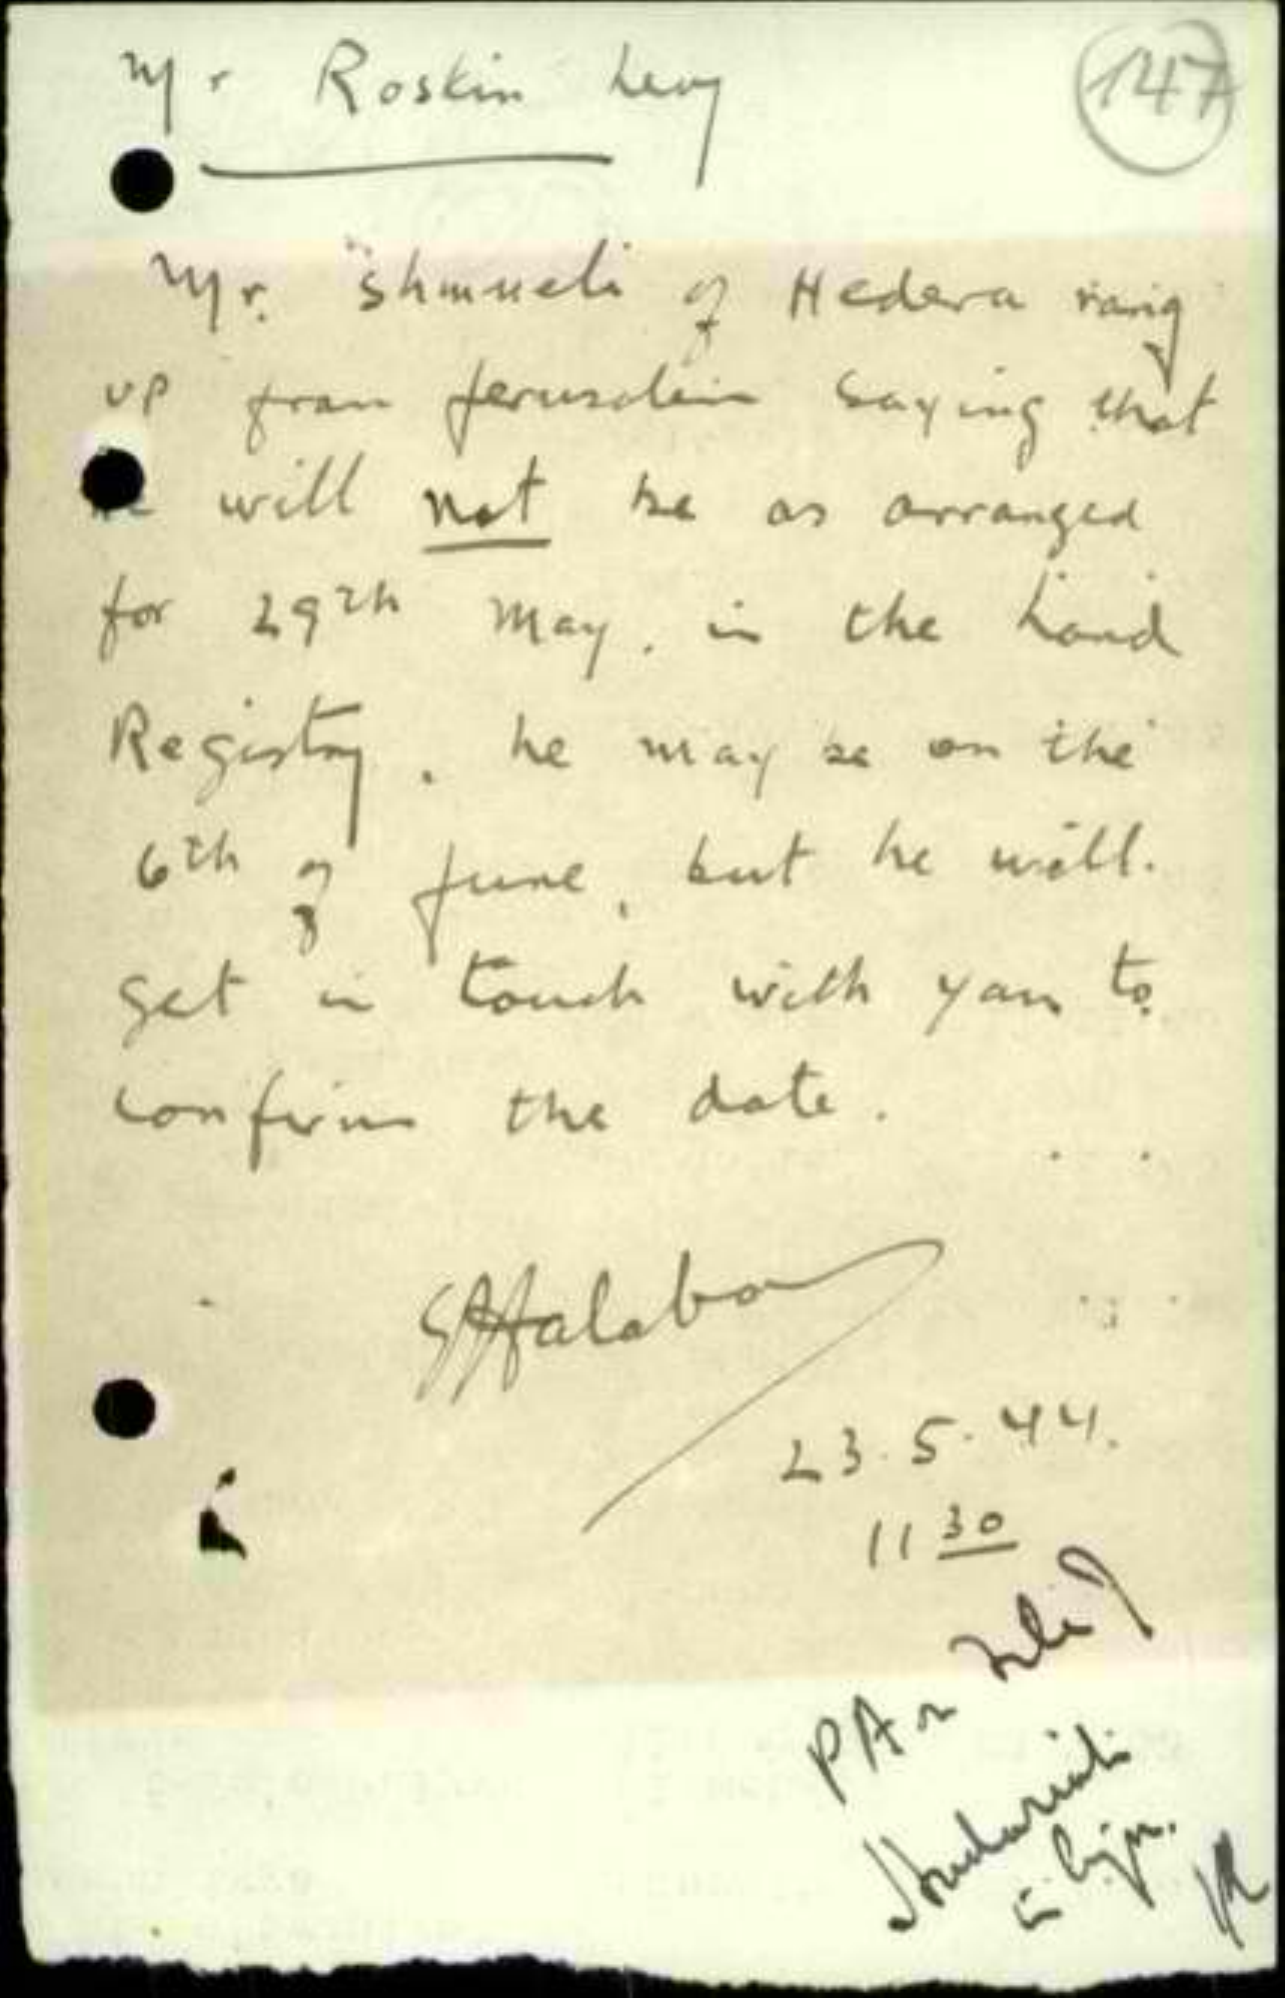 147
Mr Roskin Levy
Mr. Shmueli of Hedera rang
up from Jerusalem saying that
he will not be as arranged
for 29th May. in the Land
Registry. he may be on the
6th of June, but he will.
get in touch with you to
confirm the date.
23.5.44.
11 30
PA